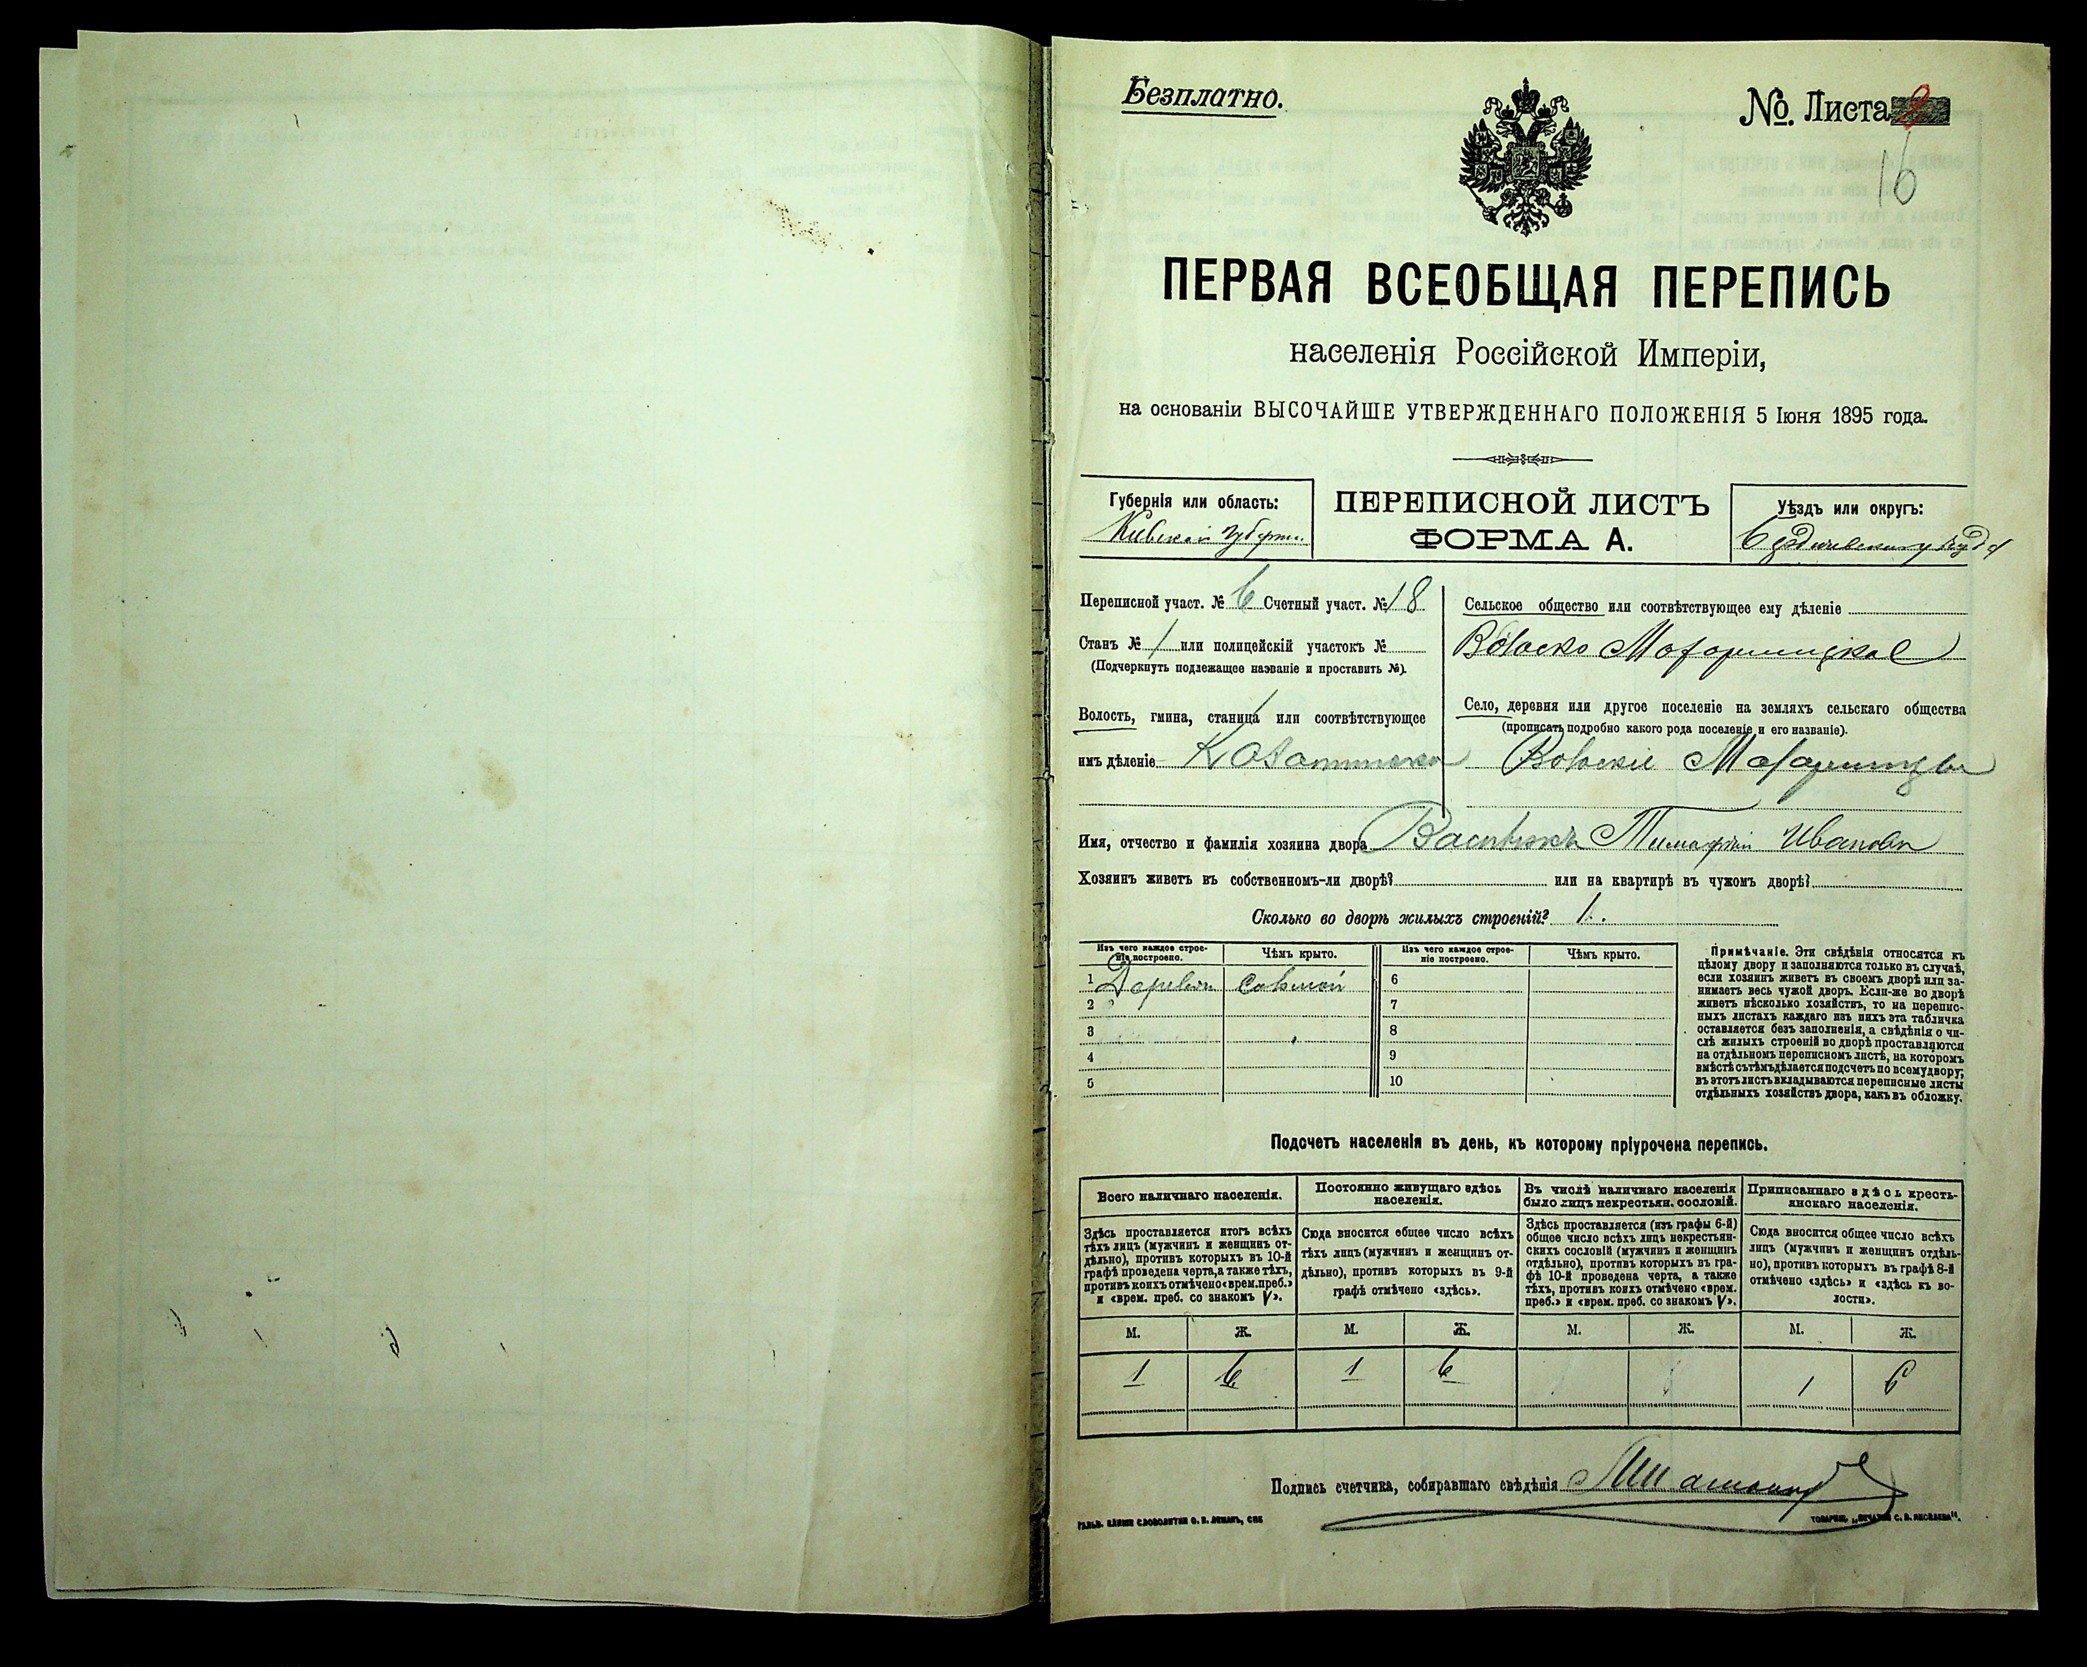 Безплатно.
№ Листа 9
16
ПЕРВАЯ ВСЕОБЩАЯ ПЕРЕПИСЬ
населенія Россійской Имперіи,
на основаніи ВЫСОЧАЙШЕ УТВЕРЖДЕННАГО ПОЛОЖЕНІЯ 5 Іюня 1895 года.
Губернія или область:
ПЕРЕПИСНОЙ ЛИСТЪ
ФОРМА А.
Уѣздъ или округъ:
Переписной участ. № 6 Счетный участ. № 18
Станъ № 1 или полицейскій участокъ №
(Подчеркнуть подлежащее названіе и проставить №).
Волость, гмина, станица или соотвѣтствующее
имъ дѣленіе
Сельское общество или соотвѣтствующее ему дѣленіе
Село, деревня или другое поселеніе на земляхъ сельскаго общества
(прописать подробно какого рода поселеніе и его названіе).
Имя, отчество и фамилія хозяина двора Тимофѣй Ивановъ
Хозяинъ живетъ въ собственномъ-ли дворѣ? или на квартирѣ въ чужомъ дворѣ?
Сколько во дворѣ жилыхъ строеній? 1.
Изъ чего каждое строе-
ніе построено.
Чѣмъ крыто.
Изъ чего каждое строе-
ніе построено.
Чѣмъ крыто.
1
6
2
7
3
8
4
9
5
10
Примѣчаніе. Эти свѣдѣнія относятся къ
цѣлому двору и заполняются только въ случаѣ,
если хозяинъ живетъ въ своемъ дворѣ или за-
нимаетъ весь чужой дворъ. Если-же во дворѣ
живетъ нѣсколько хозяйствъ, то на перепис-
ныхъ листахъ каждаго изъ нихъ эта табличка
оставляется безъ заполненія, а свѣдѣнія о чи-
слѣ жилыхъ строеній во дворѣ проставляются
на отдѣльномъ переписномъ листѣ, на которомъ
вмѣстѣ съ тѣмъ дѣлается подсчетъ по всему двору;
въ этотъ листъ вкладываются переписные листы
отдѣльныхъ хозяйствъ двора, какъ въ обложку.
Подсчетъ населенія въ день, къ которому пріурочена перепись.
Всего наличнаго населенія.
Здѣсь проставляется итогъ всѣхъ
тѣхъ лицъ (мужчинъ и женщинъ от-
дѣльно), противъ которыхъ въ 10-й
графѣ проведена черта, а также тѣхъ,
противъ коихъ отмѣчено «врем. преб.»
и «врем. преб. со знакомъ V».
Постоянно живущаго здѣсь
населенія.
Сюда вносится общее число всѣхъ
тѣхъ лицъ (мужчинъ и женщинъ от-
дѣльно), противъ которыхъ въ 9-й
графѣ отмѣчено «здѣсь».
Въ числѣ наличнаго населенія
было лицъ некрестьян. сословій.
Здѣсь проставляется (изъ графы 6-й)
общее число всѣхъ лицъ некрестьян-
скихъ сословій (мужчинъ и женщинъ
отдѣльно), противъ которыхъ въ гра-
фѣ 10-й проведена черта, а также
тѣхъ, противъ коихъ отмѣчено «врем.
преб.» и «врем. преб. со знакомъ V».
Приписаннаго здѣсь кресть-
янскаго населенія.
Сюда вносится общее число всѣхъ
лицъ (мужчинъ и женщинъ отдѣль-
но), противъ которыхъ въ графѣ 8-й
отмѣчено «здѣсь» и «здѣсь къ во-
лости».
М. Ж. М. Ж. М. Ж. М. Ж.
1 6 1 6 1 6
Подпись счетчика, собиравшаго свѣдѣнія